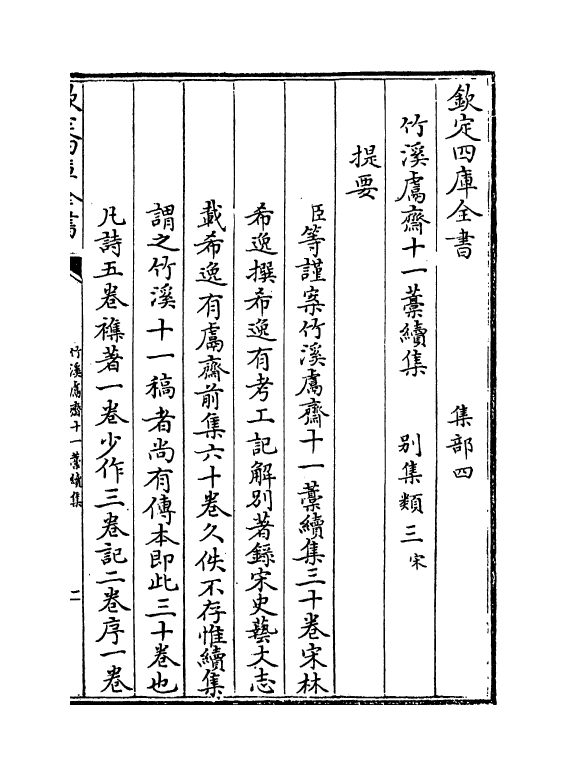 欽定四庫全書　集部四
竹溪鬳齋十一藁續集　別集類三宋
提要
臣等謹案竹溪鬳齋十一藁續集三十卷宋林
希逸撰希逸有考工記解別著錄宋史藝文志
載希逸有鬳齋前集六十卷久佚不存惟續集
謂之竹溪十一稿者尚有傳本即此三十卷也
凡詩五卷襍著一卷少作三卷記二卷序一卷
欽定四庫全書
竹溪鬳齋十一藁續集